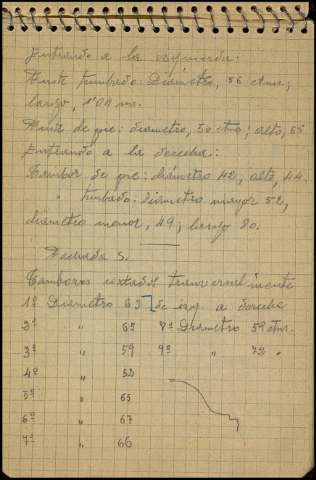 Entrando a la izquierda:
Fuste tumbado: Diámetro, 56 ctms;
largo, 1'04 ms.
Fuste de pie: diámetro, 50 ctms; alto, 55
Entrando a la derecha:
Tambor de pie: diámetro 42, alto, 44.
" tumbado: diámetro mayor 52,
diámetro menor, 49; largo 80.
Fachada S.
Tambores uxtadas transversalmente
1º Diámetro 63 de izq. a derecha
2º " 65 8º Diámetro 59 ctms.
3º " 59 9º " 72 "
4º " 52
5º " 65
6º " 67
7º " 66